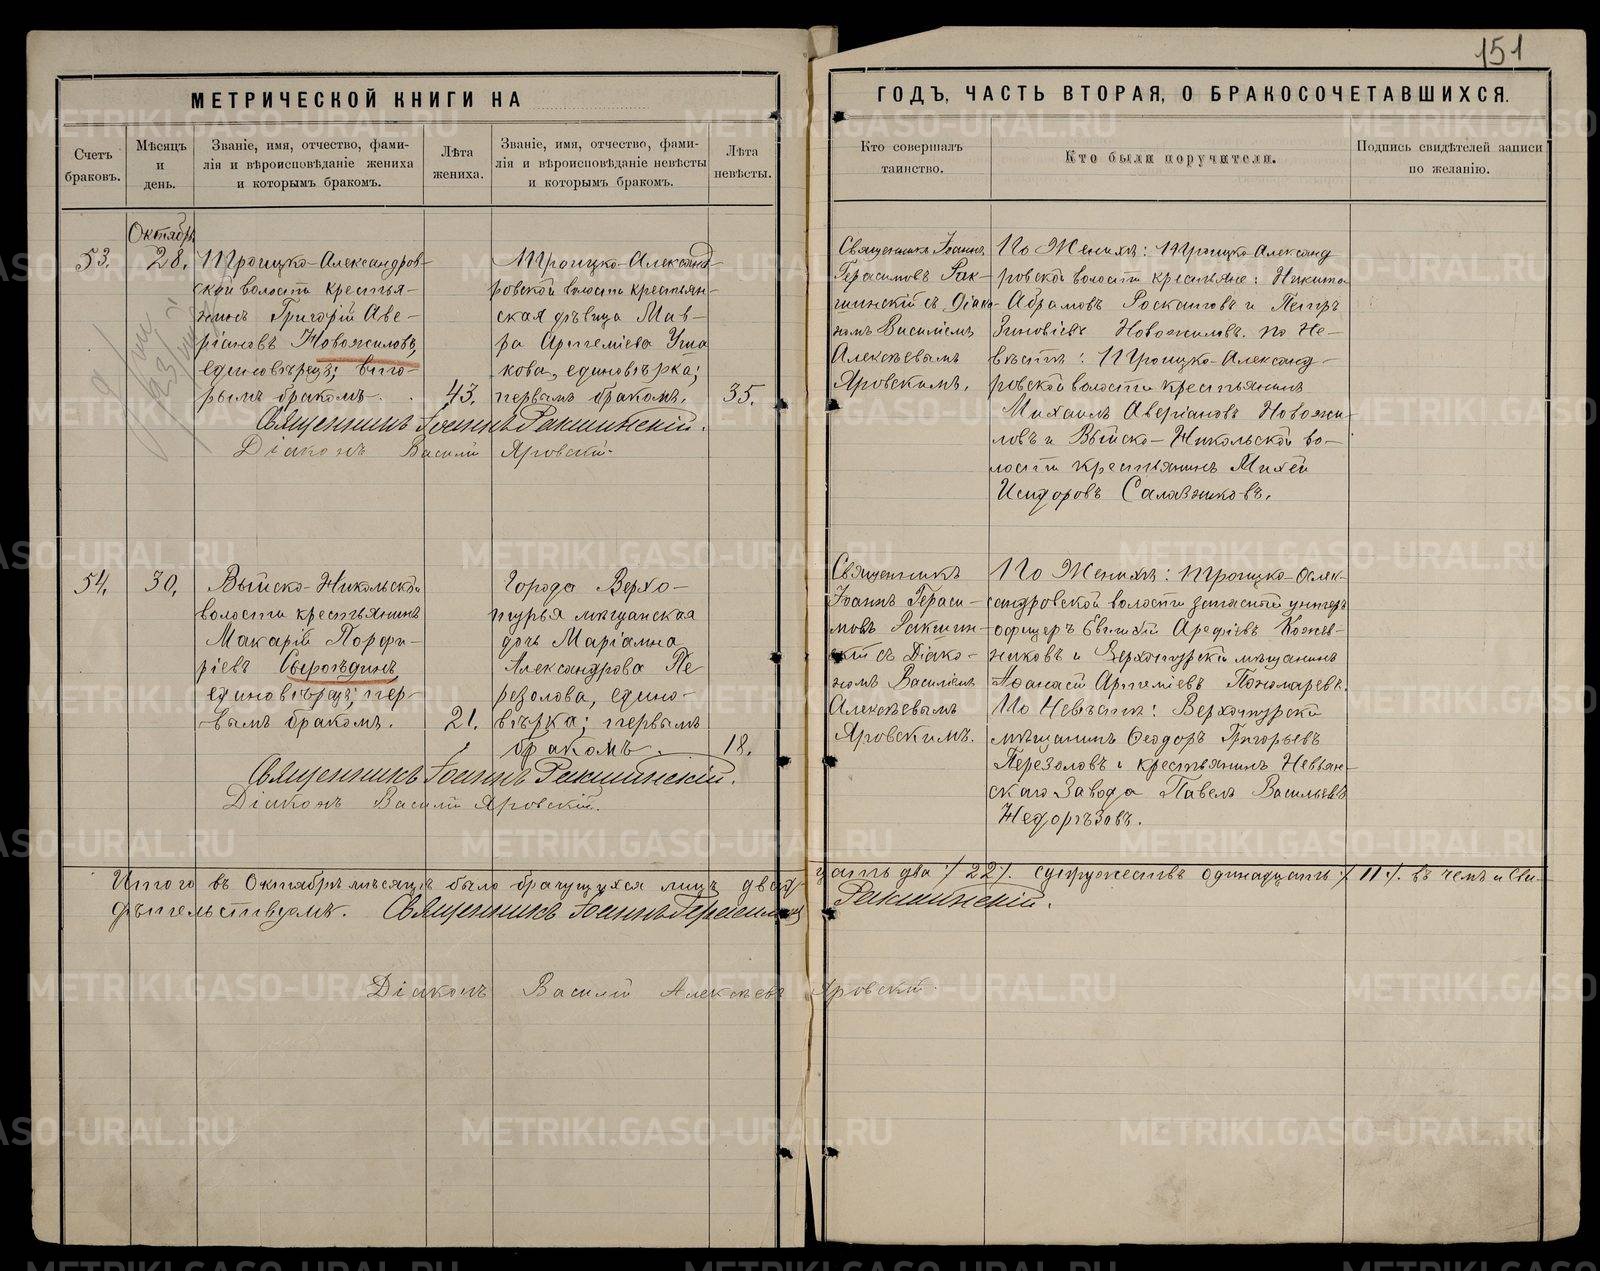 151
МЕТРИЧЕСКОЙ КНИГИ НА
ГОДЪ, ЧАСТЬ ВТОРАЯ, О БРАКОСОЧЕТАВШИХСЯ.
Счетъ браковъ.
Мѣсяцъ и день.
Званіе, имя, отчество, фами-
лія и вѣроисповѣданіе жениха
и которымъ бракомъ.
Лѣта жениха.
Званіе, имя, отчество, фами-
лія и вѣроисповѣданіе невѣсты
и которымъ бракомъ.
Лѣта невѣсты.
Кто совершалъ
таинство.
Кто были поручители.
Подпись свидѣтелей записи
по желанію.
53.
Октябрь
28.
Троицко-Александров-
ской волости крестья-
нинъ Григорій Аве-
ріановъ Новожиловъ,
единовѣрецъ; вто-
рымъ бракомъ.
43.
Троицко-Александ-
ровской волости крестьян-
ская дѣвица Мав-
ра Артеміева Уша
кова, единовѣрка;
первымъ бракомъ.
35.
Священникъ Іоаннъ Ракшинскій.
Діаконъ Василій Яровскій.
Священникъ Іоаннъ
Герасимовъ Рак-
шинскій съ Діако-
номъ Василіемъ
Алексѣевымъ
Яровскимъ.
По Женихѣ: Троицко-Александ
ровской волости крестьяне: Никита
Абрамовъ и Петръ
Зиновіевъ Новожиловъ. по Не-
вѣстѣ: Троицко-Александ-
ровской волости крестьянинъ
Михаилъ Аверіановъ Новожи-
ловъ и Выйско-Никольской во-
лости крестьянинъ Михей
Исидоровъ Салазниковъ.
54.
30.
Выйско-Никольской
волости крестьянинъ
Макарій Порфи-
ріевъ Сыроѣдинъ,
единовѣрецъ; пер-
вымъ бракомъ.
21.
Города Верхо-
турья мѣщанская
дочь Маріамна
Александрова Пе
резолова, едино-
вѣрка; первымъ
бракомъ.
18.
Священникъ Іоаннъ Ракшинскій.
Діаконъ Василій Яровскій.
Священникъ
Іоаннъ Гераси-
мовъ Ракшин-
скій съ Діако-
номъ Василіемъ
Алексѣевымъ
Яровскимъ.
По Женихѣ: Троицко-Алек-
сандровской волости запасной унтеръ
офицеръ Арефіевъ Кожев-
никовъ и Верхотурскій мѣщанинъ
Аѳанасій Артеміевъ Пономаревъ.
По Невѣстѣ: Верхотурскій
мѣщанинъ Ѳеодоръ Григорьевъ
Перезоловъ и крестьянинъ Невьян-
скаго Завода Павелъ Васильевъ
Недорѣзовъ.
Итого въ Октябрѣ мѣсяцѣ было брачущихся лицъ двад-
цать два /22/. супружествъ одинадцать /11/. въ чемъ и сви-
дѣтельствуемъ. Священникъ Іоаннъ Герасимовъ
Ракшинскій.
Діаконъ Василій Алексѣевъ Яровскій.
METRIKI.GASO-URAL.RU